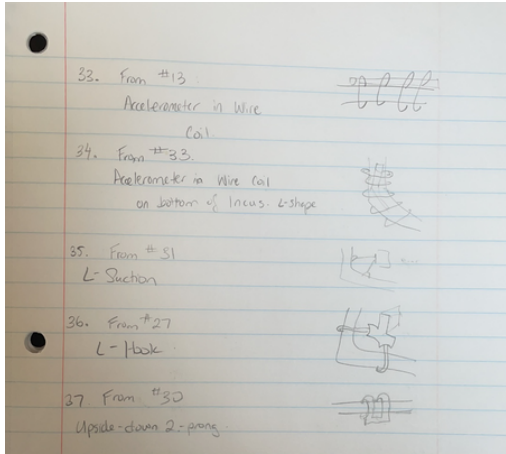 33. From #13
Accelerometer in Wire
Coil.
34. From #33.
Accelerometer in Wire Coil
on bottom of Incus. L-shape
35. From #31
L-Suction
36. From #27
L-Hook
37 From #30
Upside-down 2-prong.